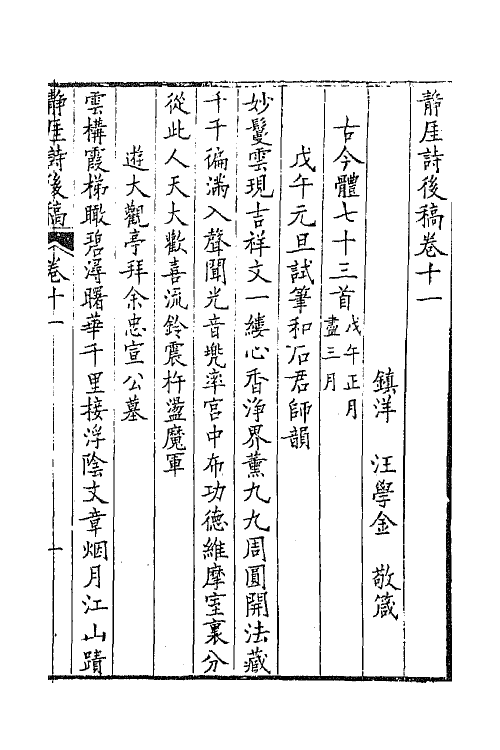 靜厓詩後稿卷十一
鎮洋　汪學金　敬箴
古今體七十三首戊午正月盡三月
戊午元旦試筆和石君師韻
妙鬘雲現吉祥文一縷心香浄界薰九九周圓開法藏
千千徧滿入聲聞光音兠率宮中布功德維摩室裏分
從此人天大歡喜流鈴震杵盪魔軍
遊大觀亭拜余忠宣公墓
雲構霞梯瞰碧潯曙華千里接浮陰文章烟月江山蹟
靜厓詩後稿　卷十一　一